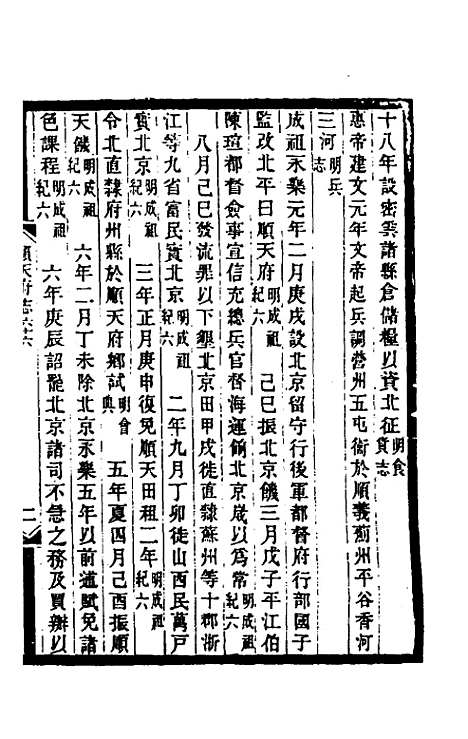 十八年設密雲諸縣倉儲糧以資北征明食貨志
惠帝建文元年文帝起兵調營州五屯衛於順義薊州平谷香河
三河明兵志
成祖永樂元年二月庚戌設北京留守行後軍都督府行部國子
監改北平曰順天府明成祖紀六 己巳振北京饑三月戊子平江伯
陳瑄都督僉事宣信充總兵官督海運餉北京歲以為常明成祖紀六
八月己巳發流罪以下墾北京田甲戌徙直隸蘇州等十郡浙
江等九省富民實北京明成祖紀六 二年九月丁卯徙山西民萬戶
實北京明成祖紀六 三年正月庚申復免順天田租二年明成祖紀六
令北直隸府州縣於順天府鄉試明會典 五年夏四月己酉振順
天饑明成祖紀六 六年二月丁未除北京永樂五年以前逋賦免諸
色課程明成祖紀六 六年庚辰詔罷北京諸司不急之務及買辦以
順天府志六十六
二